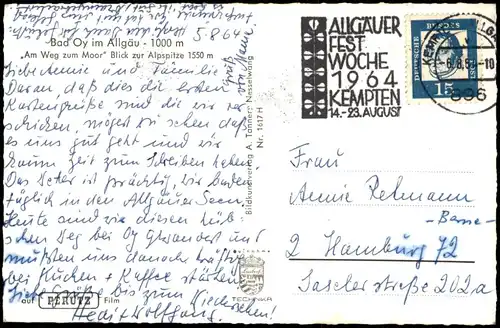 5.8.64
Bad Oy im Allgäu - 1000 m
„Am Weg zum Moor" Blick zur Alpspitze 1550 m
Liebe Annie und Familie!
Daran, daß dies die ersten
Kartengrüße sind die wir ver
schicken, mögt ihr sehen daß
es uns gut geht und wir
kaum Zeit zum Schreiben haben.
Das Wetter ist prächtig, wir baden
täglich in den Allgäuer Seen.
Heute sind wir diesen hüb
schen Weg bei Oy gewandert und
mußten uns danach kräftig
bei Kuchen + Kaffee stärken.
Liebe Grüße bis zum Wiedersehen
Hedi + Wolfgang
auf PERUTZ Film
TECHNIKER
Bildkunstverlag A. Tanner, Nesselwang
Nr. 1617 H
ALLGÄUER
FEST
WOCHE
1964
KEMPTEN
14.-23. AUGUST
DEUTSCHE BUNDESPOST
15
896
Frau
Annie Rehmann
2 Hamburg 72
Saseler Straße 202a